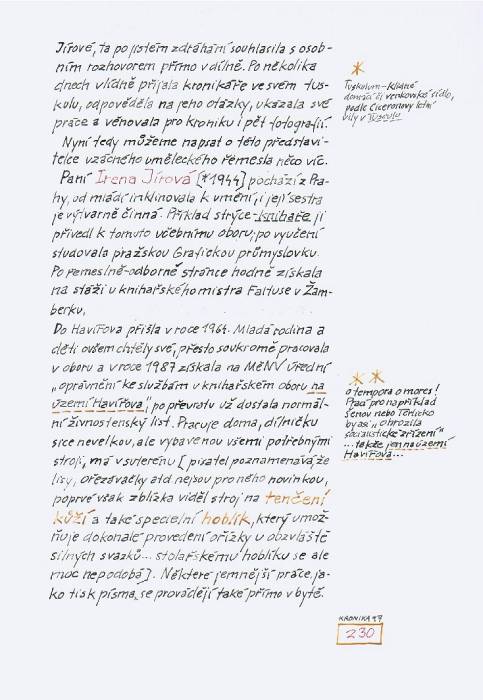 Jírové, ta po jistém zdráhání souhlasila s osob-
ním rozhovorem přímo v dílně. Po několika
dnech vlídně přijala kronikáře ve svém tus-
kulu, odpověděla na jeho otázky, ukázala své
práce a věnovala pro kroniku i pět fotografií.
Nyní tedy můžeme napsat o této představi-
telce vzácného uměleckého řemesla něco víc.
Paní Irena Jírová [*1944] pochází z Pra-
hy, od mládí inklinovala k umění, i její sestra
je výtvarně činná. Příklad strýce-knihaře ji
přivedl k tomuto učebnímu oboru; po vyučení
studovala pražskou Grafickou průmyslovku.
Po řemeslně-odborné stránce hodně získala
na stáži u knihařského mistra Faltuse v Žam-
berku.
Do Havířova přišla v roce 1964. Mladá rodina a
děti ovšem chtěly své, přesto soukromě pracovala
v oboru a v roce 1987 získala na MěNV úřední
„oprávnění ke službám v knihařském oboru na
území Havířova", po převratu už dostala normál-
ní živnostenský list. Pracuje doma, dílničku
sice nevelkou, ale vybavenou všemi potřebnými
stroji, má v suterénu [pisatel poznamenává, že
lisy, ořezávačky atd nejsou pro něho novinkou,
poprvé však zblízka viděl stroj na tenčení
kůží a také specielní hoblík, který umož-
ňuje dokonalé provedení ořízky u obzvláště
silných svazků... stolařskému hoblíku se ale
moc nepodobá]. Některé jemnější práce, ja-
ko tisk písma, se provádějí také přímo v bytě.
*
Tuskulum-klidné
domácí či venkovské sídlo,
podle Ciceronovy letní
vily v Tusculu
**
o tempora o mores!
Prací pro například
Šenov nebo Těrlicko
by asi „ohrozila
socialistické zřízení"
...takže jen na území
Havířova...
KRONIKA 97
230